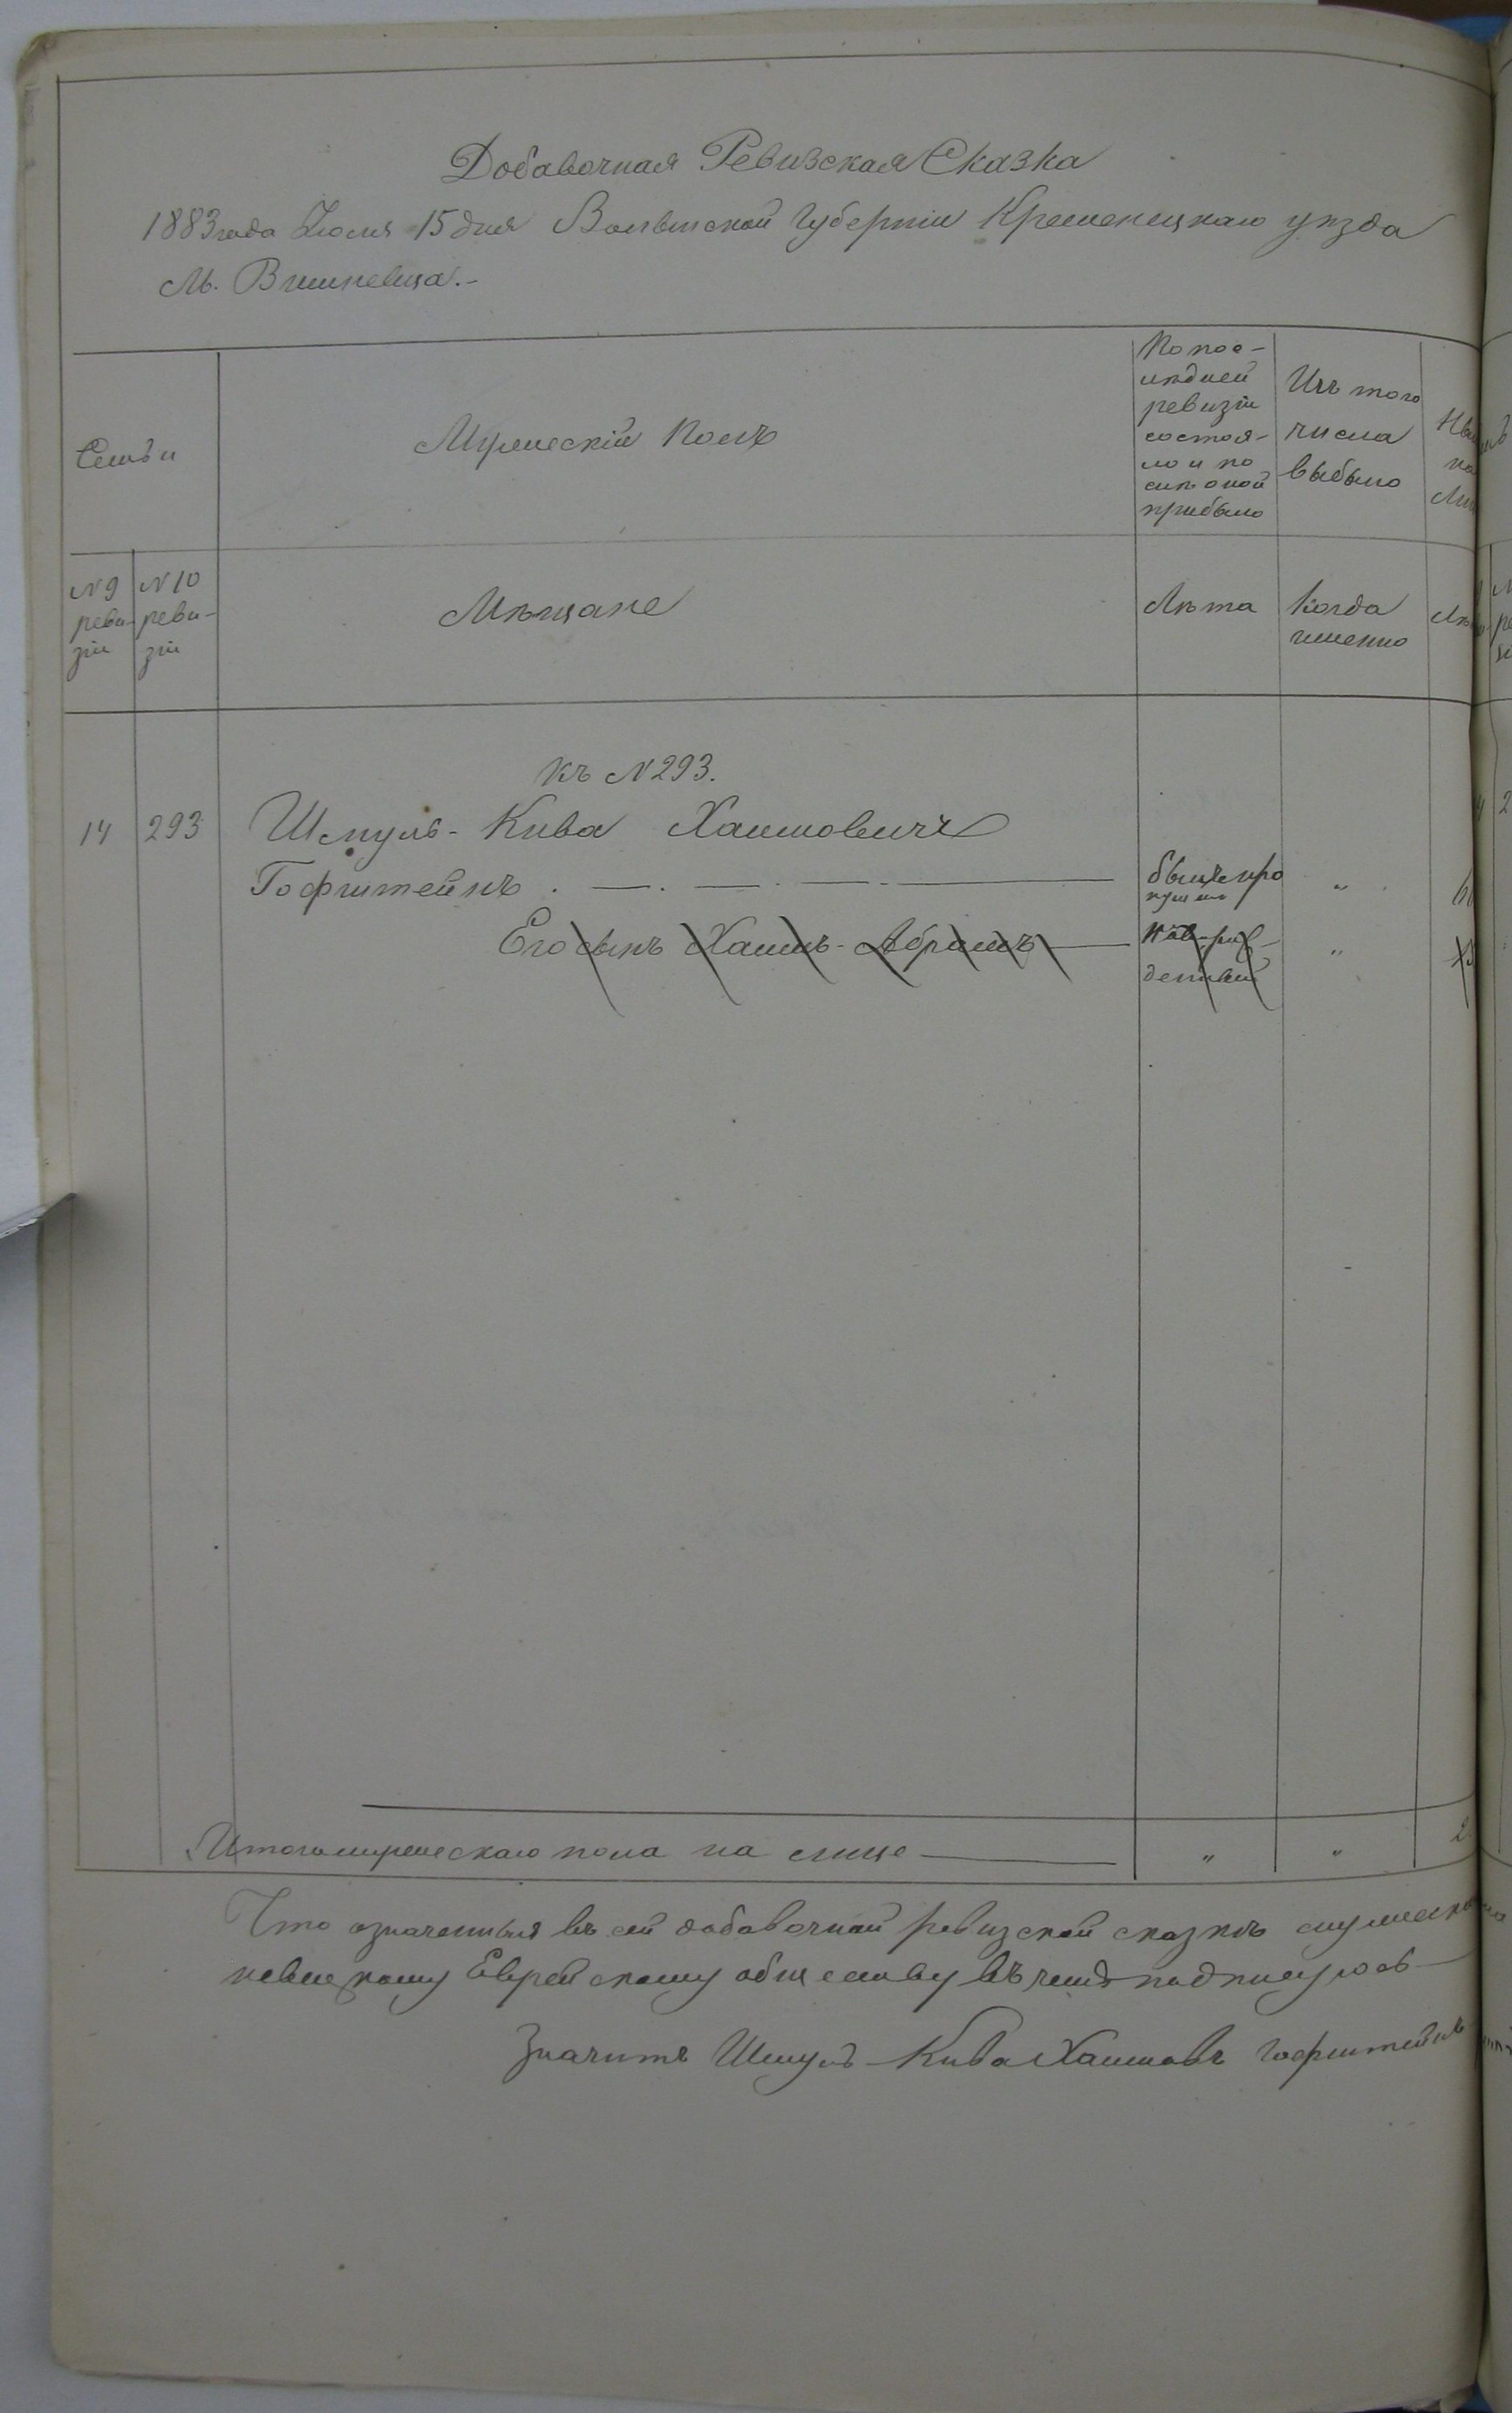 Добавочная Ревизская Сказка
1883 года Июля 15 дня Волынской Губерніи Кременецкаго уѣзда
М. Вишневца.-
Семьи
Мужескій Полъ
По пос-
лѣдней
ревизіи
состоя-
ло и по
слѣ оной
прибыло
Изъ того
числа
выбыло
№ 9
реви-
зіи
№ 10
реви-
зіи
Мѣщане
Лѣта
Когда
именно
Къ № 293.
14 293 Шмуль-Кива Хаимовичъ
Гофштейнъ . — . — . — . — "
Его сынъ Хаимъ-Абрамъ — "
Итого мужескаго пола на лицо — " " 2
Что означенныя въ сей добавочной ревизской сказкѣ
Еврейскому обществу въ чемъ подписуюсь
Значитъ Шмуль-Кива Хаимовъ Гофштейнъ